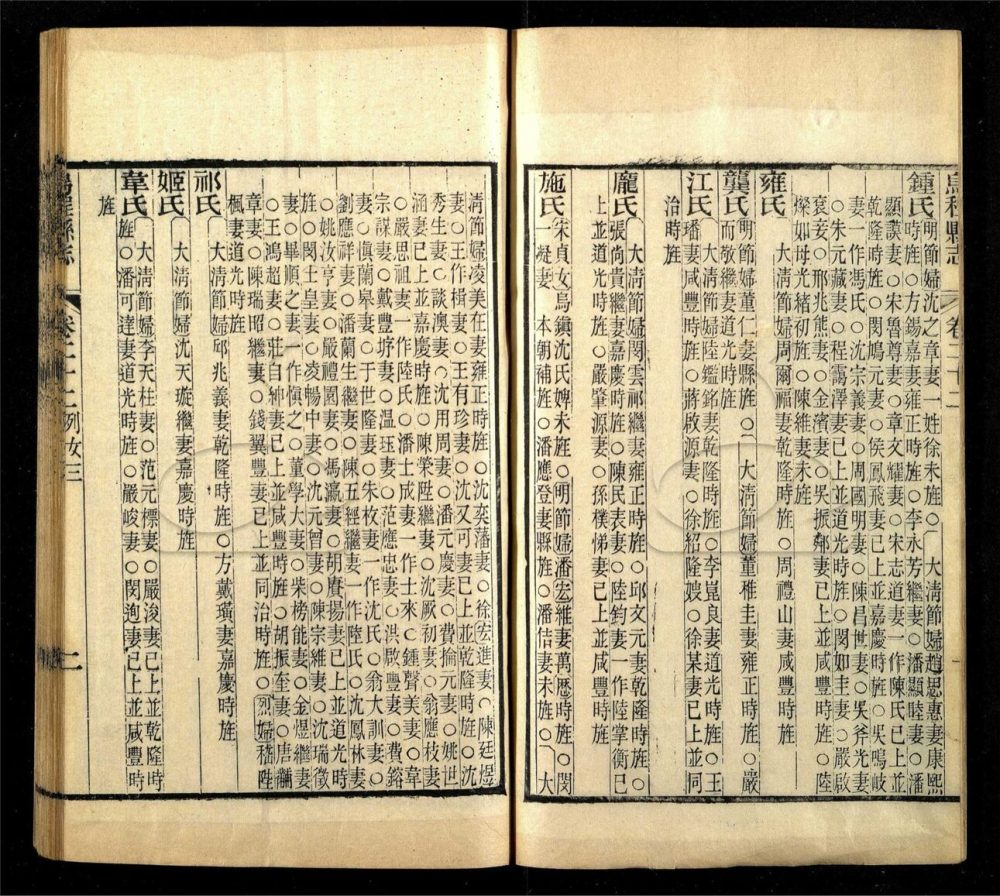 烏程縣志 卷二十二
鍾氏 明節婦沈之章妻一姓徐未旌○大淸節婦趙思惠妻康熙
時旌○方錫嘉妻雍正時旌○李永芳繼妻○潘顯陸妻○潘
顯謨妻○宋魯尊妻○章文耀妻○宋志道妻一作陳氏已上並
乾隆時旌○閔鳩元妻○侯鳳飛妻已上並嘉慶時旌○吳鳴岐
妻一作馮氏○沈宗義妻○周國明妻○陳昌世妻○吳斧光妻
○朱元藏妻○程靄澤妻已上並道光時旌○閔如圭妻○嚴啟
袞妾○邢兆熊妻○金濱妻○吳振鄰妻已上並咸豐時旌○陸
燦如母光緒初旌○陳維妻未旌
雍氏 大淸節婦周爾福妻乾隆時旌○周禮山妻咸豐時旌
龔氏 明節婦董仁妻縣旌○大淸節婦董稚圭妻雍正時旌○嚴
而敬繼妻道光時旌
江氏 大淸節婦陸鑑銘妻乾隆時旌○李崑良妻道光時旌○王
璠妻咸豐時旌○蔣啟源妻○徐紹隆嫂○徐某妻已上並同
治時旌
龐氏 大淸節婦閔雲祁繼妻雍正時旌○邱文元妻乾隆時旌○
張尚貴繼妻嘉慶時旌○陳民表妻○陸鈞妻一作陸掌衡已
上並道光時旌○嚴肇源妻○孫樸悌妻已上並咸豐時旌
施氏 宋貞女烏鎭沈氏婢未旌○明節婦潘宏維妻萬厯時旌○閔
一凝妻 本朝補旌○潘應登妻縣旌○潘佶妻未旌○大
淸節婦凌美在妻雍正時旌○沈奕藩妻○徐宏進妻○陳廷煜
妻○王作楫妻○王有珍妻○沈又可妻已上並乾隆時旌○沈
秀生妻○談澳妻○沈用周妻○潘元慶妻○費掄元妻○姚世
涵妻已上並嘉慶時旌○陳榮陞繼妻○沈厥初妻○翁應枝妻
○嚴思祖妻一作陸氏○潘士成妻一作士來○鍾聲美妻○章
宗謀妻○戴豐垿妻○溫玨妻○范應忠妻○洪啟豐妻○費鎔
妻○愼蘭皋妻○于世隆妻○朱枚妻一作沈氏○翁大訓妻○
劉應祥妻○潘蘭生繼妻○陳五經繼妻一作陸氏○沈鳳林妻
○姚汝亨妻○嚴禮園妻○馮瀛妻○胡賡揚妻已上並道光時
旌○閔士皇妻○凌暢中妻○沈元曾妻○陳宗維妻○沈瑞徵
妻○畢順之妻一作愼之○董學大妻○柴榜能妻○金煜繼妻
○王鴻超妻○莊自錦妻已上並咸豐時旌○胡振奎妻○唐黼
章妻○陳瑞昭繼妻○錢翼豐妻已上並同治時旌○烈婦嵇陞
楓妻道光時旌
祁氏 大淸節婦邱兆義妻乾隆時旌○方戴璜妻嘉慶時旌
姬氏 大淸節婦沈天璇繼妻嘉慶時旌
韋氏 大淸節婦李天柱妻○范元標妻○嚴浚妻已上並乾隆時
旌○潘可達妻道光時旌○嚴峻妻○閔逈妻已上並咸豐時
旌
烏程縣志 卷二十二 列女三 二